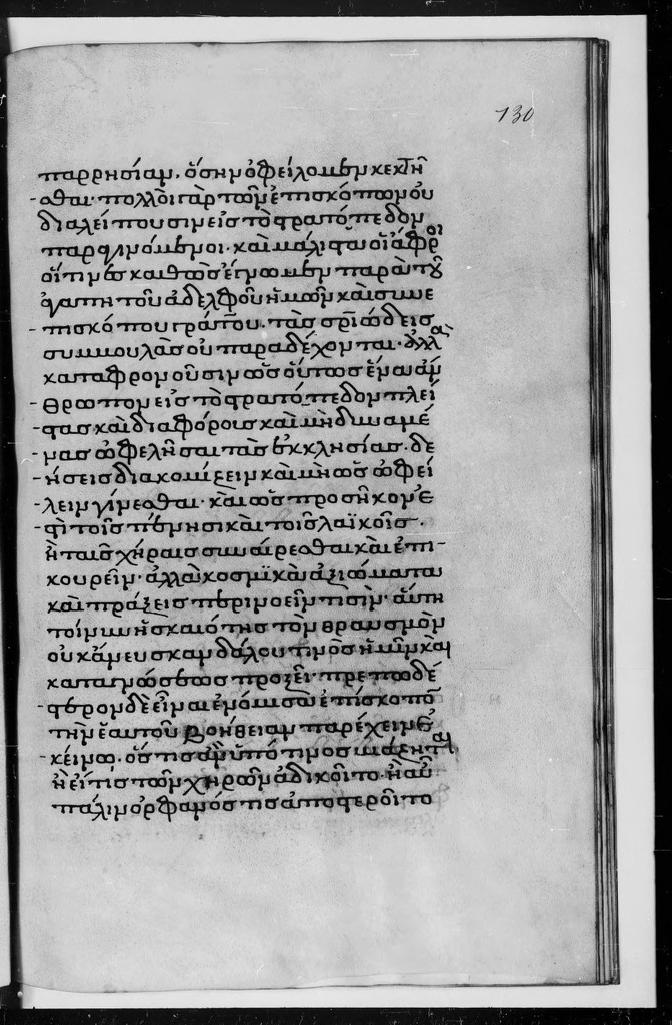 130
παρρησίαν, ὅσην ὀφείλομεν κεκτῆ
σθαι· πολλοὶ γὰρ τῶν ἐπισκόπων οὐ
διαλείπουσιν εἰς τὸ στρατόπεδον
παραγινόμενοι· καὶ μάλιστα οἱ ἄφροι
οἵτινες καθὼς ἔγνωμεν παρὰ τοῦ
ἀγαπητοῦ ἀδελφοῦ ἡμῶν καὶ συνε
πισκόπου γράτου. τὰς σρϊώδεις
συμμουλὰς οὐ παραδέχονται· ἀλλὰ
καταφρονοῦσιν ὡς οὕτως ἕνα ἄν
θρωπον εἰς τὸ στρατόπεδον πλεί
στας καὶ διαφόρους καὶ μὴ δυναμέ
νας ὠφελῆσαι τὰς ἐκκλησίας. δε
ήσεις διακομίζειν καὶ μὴ ὡς ὠφεί
λειν γίνεσθαι· καὶ ὡς προσῆκον ἐ
στὶ τοῖς πένησι καὶ τοῖς λαϊκοῖς.
ἢ ταῖς χήραις συναίρεσθαι καὶ ἐπι-
κουρεῖν· ἀλλὰ κοσμϊκὰ ἀξιώματα
καὶ πράξεις περινοεῖν τισίν· αὕτη
τοίνυν ἡ σκαιότης τὸν θραυσμὸν
οὐκ ἄνευ σκανδάλου τινὸς ἡμῖν καὶ
καταγνώσεως προξενεῖ· πρεπωδέ
στερον δὲ εἶναι ἐνόμισα ἐπίσκοπον
τὴν ἑαυτοῦ βοήθειαν παρέχειν ἐ
κείνω. ὅς τις ἂν ὑπό τινος βιάζηται
ἢ εἴ τις τῶν χηρῶν ἀδικοῖτο. ἢ αὖ
πάλιν ὀρφανός τις ἀποστεροῖτο